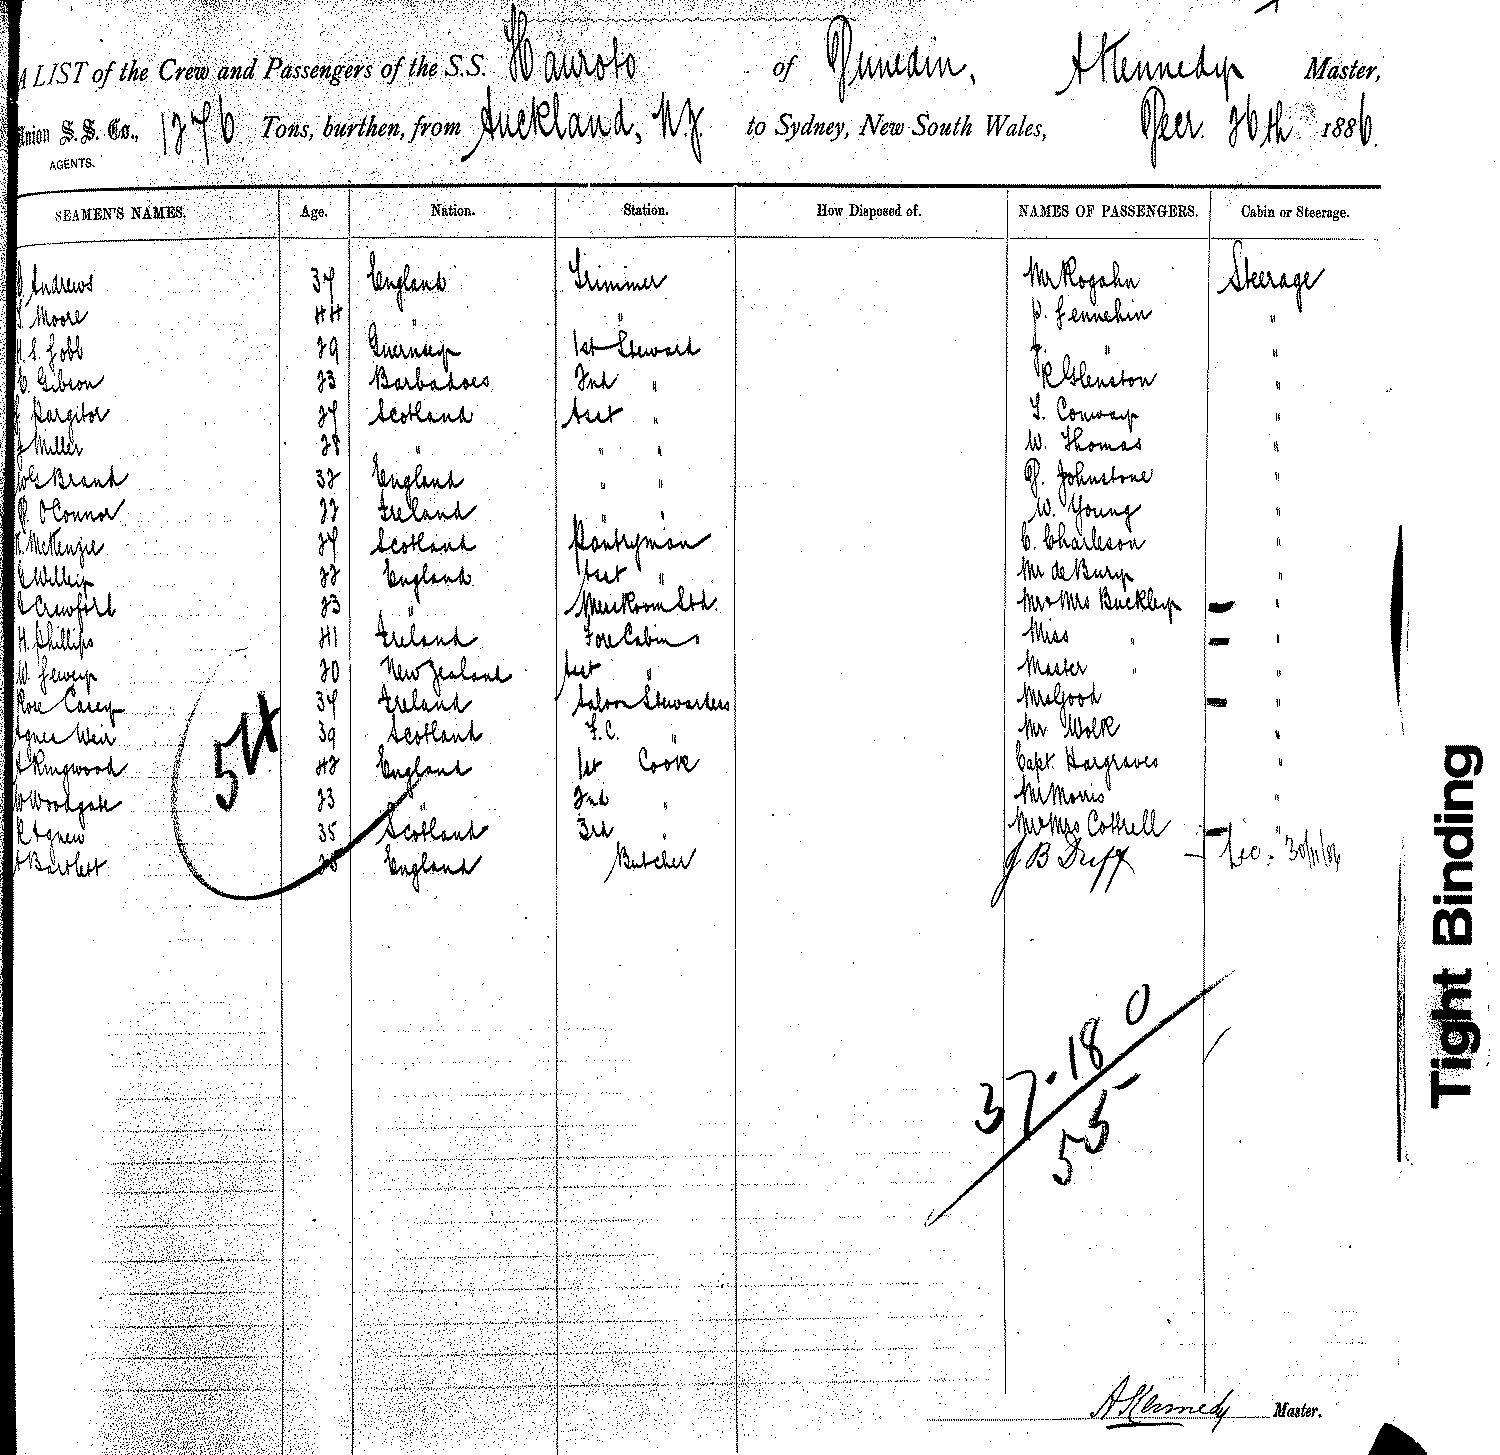 A LIST of the Crew and Passengers of the S.S. Hauroto of Dunedin, A Kennedy Master,
Union S.S. Co., 1276 Tons, burthen, from Auckland, N.Z. to Sydney, New South Wales, Decr. 26th 1886.
AGENTS.
SEAMEN'S NAMES. Age. Nation. Station. How Disposed of. NAMES OF PASSENGERS. Cabin or Steerage.
Andrews 37 England Trimmer Mr Rogahn Steerage
Moore 44 " " "
29 Guernsey 1st Steward " "
Gibson 23 Barbadoes 2nd " "
Pargiter 27 Scotland Asst " T. Conway "
Miller 28 " " " W. Thomas "
Brand 32 England " " D. Johnstone "
O'Connor 22 Ireland " " W. Young "
McKenzie 27 Scotland Pantryman C. Charleson "
22 England Asst " Mr de Bury "
Crawford 23 " Mess Room Std. Mr & Mrs Buckley "
H. Phillips 41 Ireland Fore Cabin " Miss " "
W. 20 New Zealand Asst " Master " "
Rose Casey 37 Ireland Saloon Stewardess Mrs Good "
Agnes Weir 39 Scotland F.C. " Mr Wolk "
A Ringwood 42 England 1st Cook Capt. Hargraves "
W Woodgate 23 " 2nd " Mr Morris "
R Agnew 35 Scotland 3rd " Mr & Mrs Cottrell "
A Bartlett 28 England Butcher J B Duff
54
37.18 0
55
A Kennedy Master.
Tight Binding